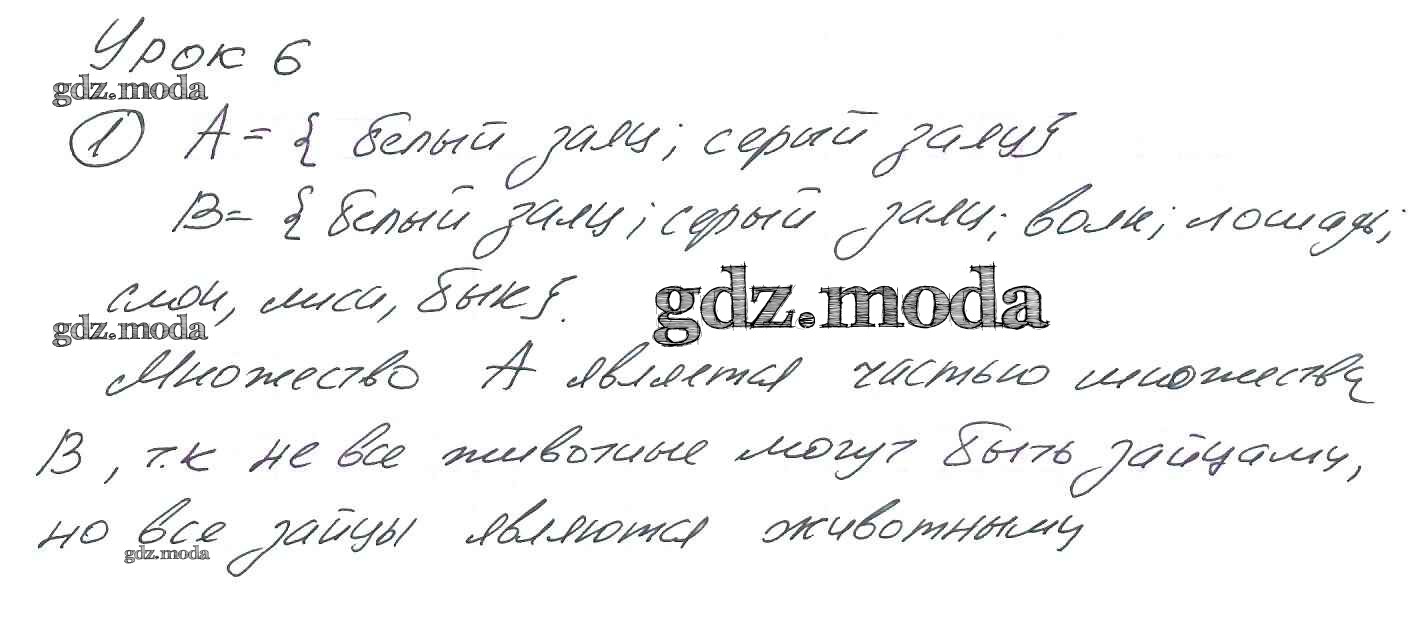 Урок 6
gdz.moda
1 A = { белый заяц; серый заяц}
B = { белый заяц; серый заяц; волк; лошадь;
слон, лиса, бык}.
gdz.moda
gdz.moda
Множество A является частью множества
B, т.к не все животные могут быть зайцами,
но все зайцы являются животными
gdz.moda